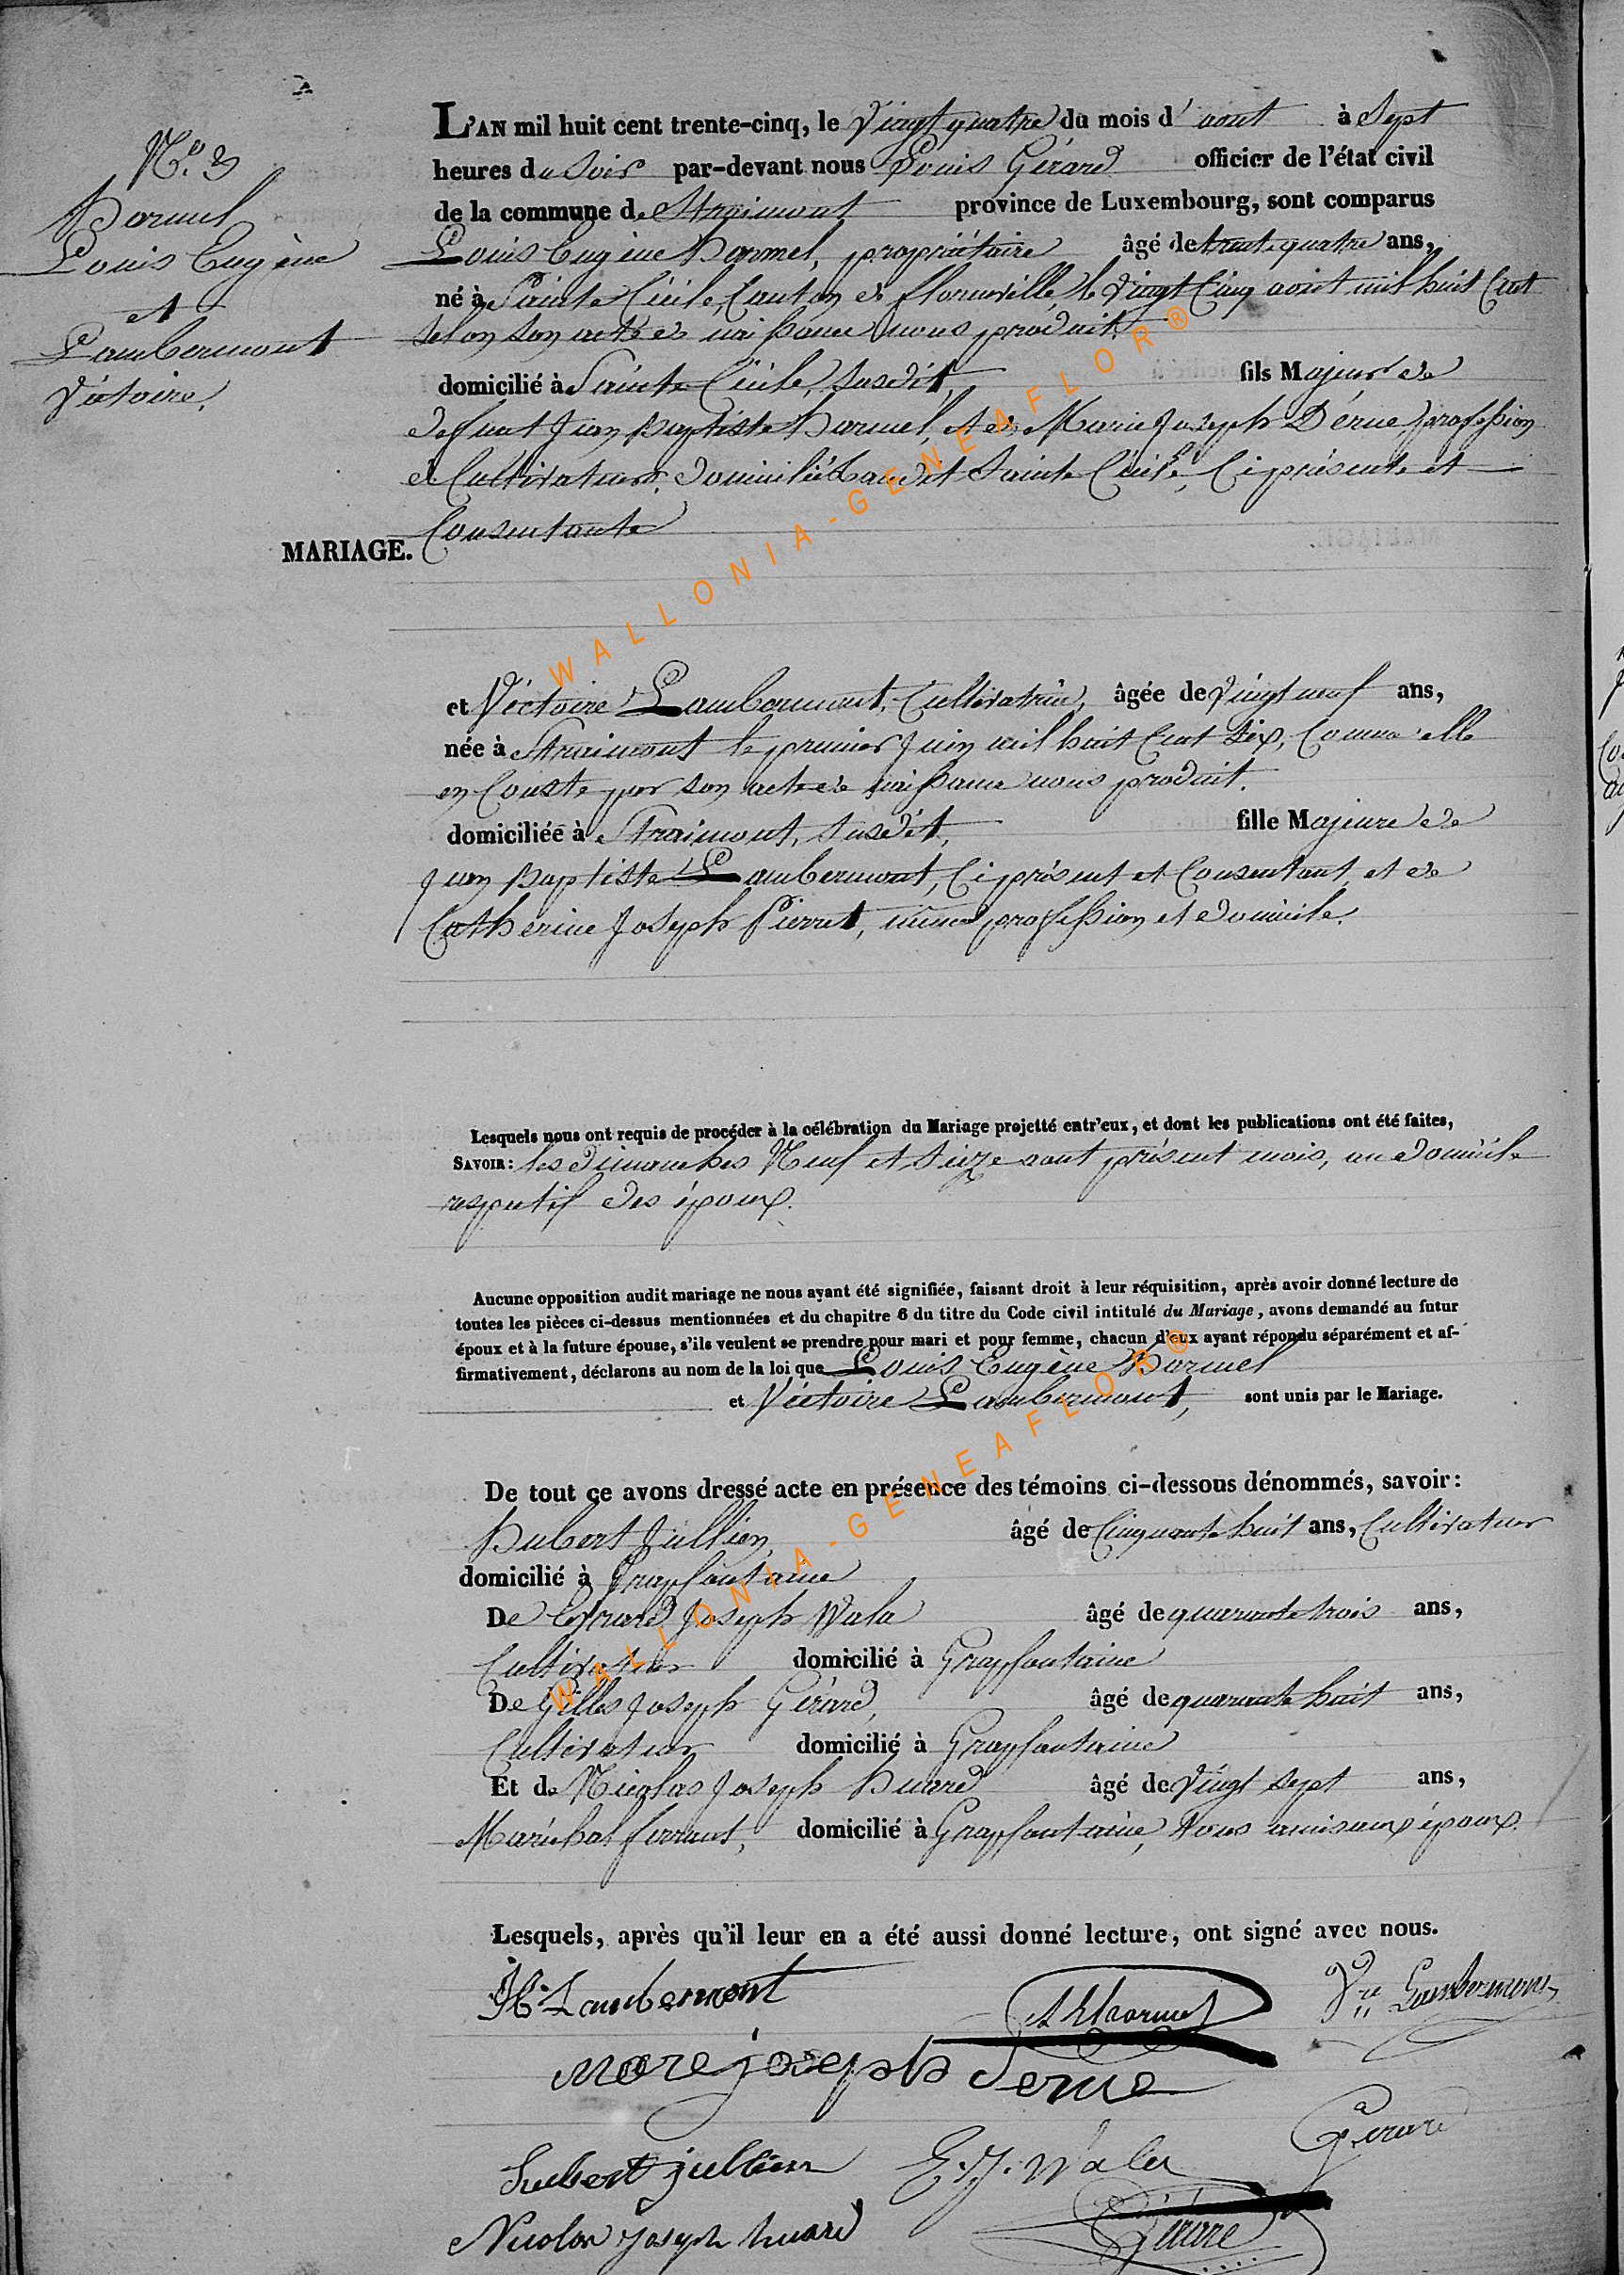 N.o 3
Hormel
Louis Eugène
et
Lambermont
Victoire.
L'AN mil huit cent trente-cinq, le Vingt quatre du mois d' aout à Sept
heures du Soir par-devant nous Louis Gérard officier de l'état civil
de la commune de Straimont province de Luxembourg, sont comparus
Louis Eugène Hormel, propriétaire âgé de trente quatre ans,
né à Sainte Cécile, Canton de florenville, le Vingt Cinq aout mil huit Cent
selon son acte de naissance nous produit.
domicilié à Sainte Cécile, susdit, fils Majeur de
defunt Jean Baptiste Hormel, et de Marie Joseph Dérue, profession
de Cultivateurs, domiciliés audit Sainte Cécile, Ci présente et
Consentante
MARIAGE.
et Victoire Lambermont, Cultivatrice, âgée de Vingt neuf ans,
née à Straimont le premier Juin mil huit Cent Six, Comme elle
en Conste par son acte de naissance nous produit.
domiciliée à Straimont, susdit, fille Majeure de
Jean Baptiste Lambermont, Ci présent et Consentant et de
Catherine Joseph Pierret, même profession et domicile.
Lesquels nous ont requis de procéder à la célébration du Mariage projetté entr'eux, et dont les publications ont été faites,
SAVOIR: les dimanches Neuf et Seize aout présent mois, au domicile
respectif des époux.
Aucune opposition audit mariage ne nous ayant été signifiée, faisant droit à leur réquisition, après avoir donné lecture de
toutes les pièces ci-dessus mentionnées et du chapitre 6 du titre du Code civil intitulé du Mariage, avons demandé au futur
époux et à la future épouse, s'ils veulent se prendre pour mari et pour femme, chacun d'eux ayant répondu séparément et af-
firmativement, déclarons au nom de la loi que Louis Eugène Hormel
et Victoire Lambermont, sont unis par le Mariage.
De tout ce avons dressé acte en présence des témoins ci-dessous dénommés, savoir:
Hubert Jullien, âgé de Cinquante huit ans, Cultivateur
domicilié à Grapfontaine
De Evrard Joseph Wala âgé de quarante trois ans,
Cultivateur domicilié à Grapfontaine
De Gilles Joseph Gérard, âgé de quarante huit ans,
Cultivateur domicilié à Grapfontaine
Et de Nicolas Joseph Huard âgé de Vingt sept ans,
Maréchal ferrant, domicilié à Grapfontaine, tous amis aux époux.
Lesquels, après qu'il leur en a été aussi donné lecture, ont signé avec nous.
Lambermont Hormel Vre Lambermont
marie joseph Derue
Hubert jullien E. J. Wala Gerard
Nicolas joseph huard Gérard
WALLONIA-GENEAFLOR®
WALLONIA-GENEAFLOR®